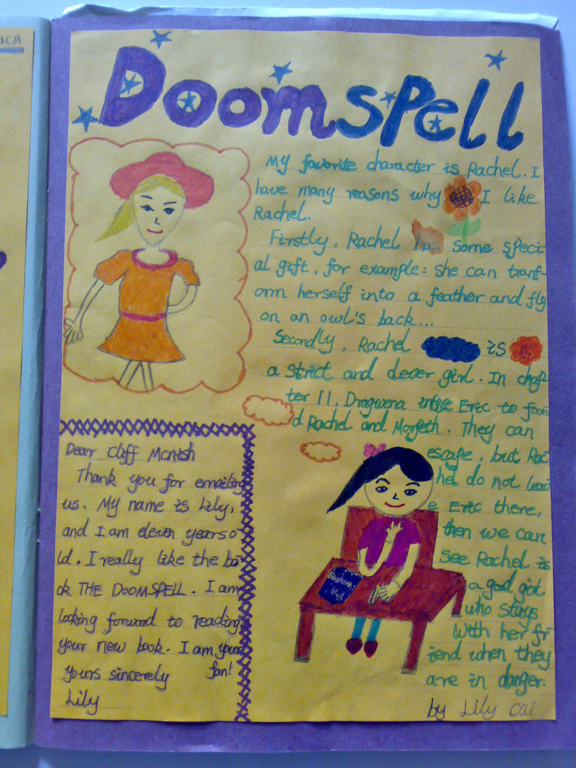 UCA
Doomspell
My favorite character is Rachel. I
have many reasons why I like
Rachel.
Firstly, Rachel has some speci
al gift, for example: she can tranf-
orm herself into a feather and fly
on an owl's back...
Secondly, Rachel is
a strict and clever girl. In chap
ter 11, Dragwena Eric to foun
d Rachel and Morpeth. They can
escape, but Rac
hel do not leav
e Eric there,
then we can
see Rachel is
a good girl
who stays
with her fr
iend when they
are in danger.
by Lily Cai
Dear Cliff Mcnish
Thank you for emailing
us. My name is Lily,
and I am eleven years o
ld. I really like the bo
ok THE DOOMSPELL. I am
looking forward to reading
your new book. I am your
yours sincerely fan!
Lily